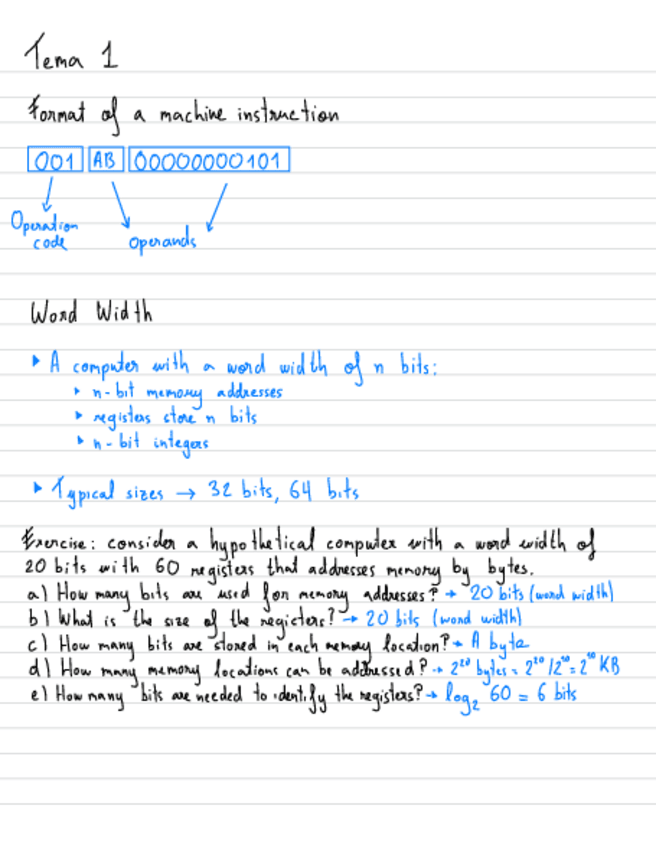 Tema 1
Format of a machine instruction
001 AB 00000000101
Operation
code
operands
Word Width
▸ A computer with a word width of n bits:
▸ n-bit memory addresses
▸ registers store n bits
▸ n-bit integers
▸ Typical sizes → 32 bits, 64 bits
Exercise: consider a hypothetical computer with a word width of
20 bits with 60 registers that addresses memory by bytes.
a) How many bits are used for memory addresses? → 20 bits (word width)
b) What is the size of the registers? → 20 bits (word width)
c) How many bits are stored in each memory location? → A byte
d) How many memory locations can be addressed? → 2²⁰ bytes = 2²⁰/2¹⁰ = 2¹⁰ KB
e) How many bits are needed to identify the registers? → log₂ 60 = 6 bits